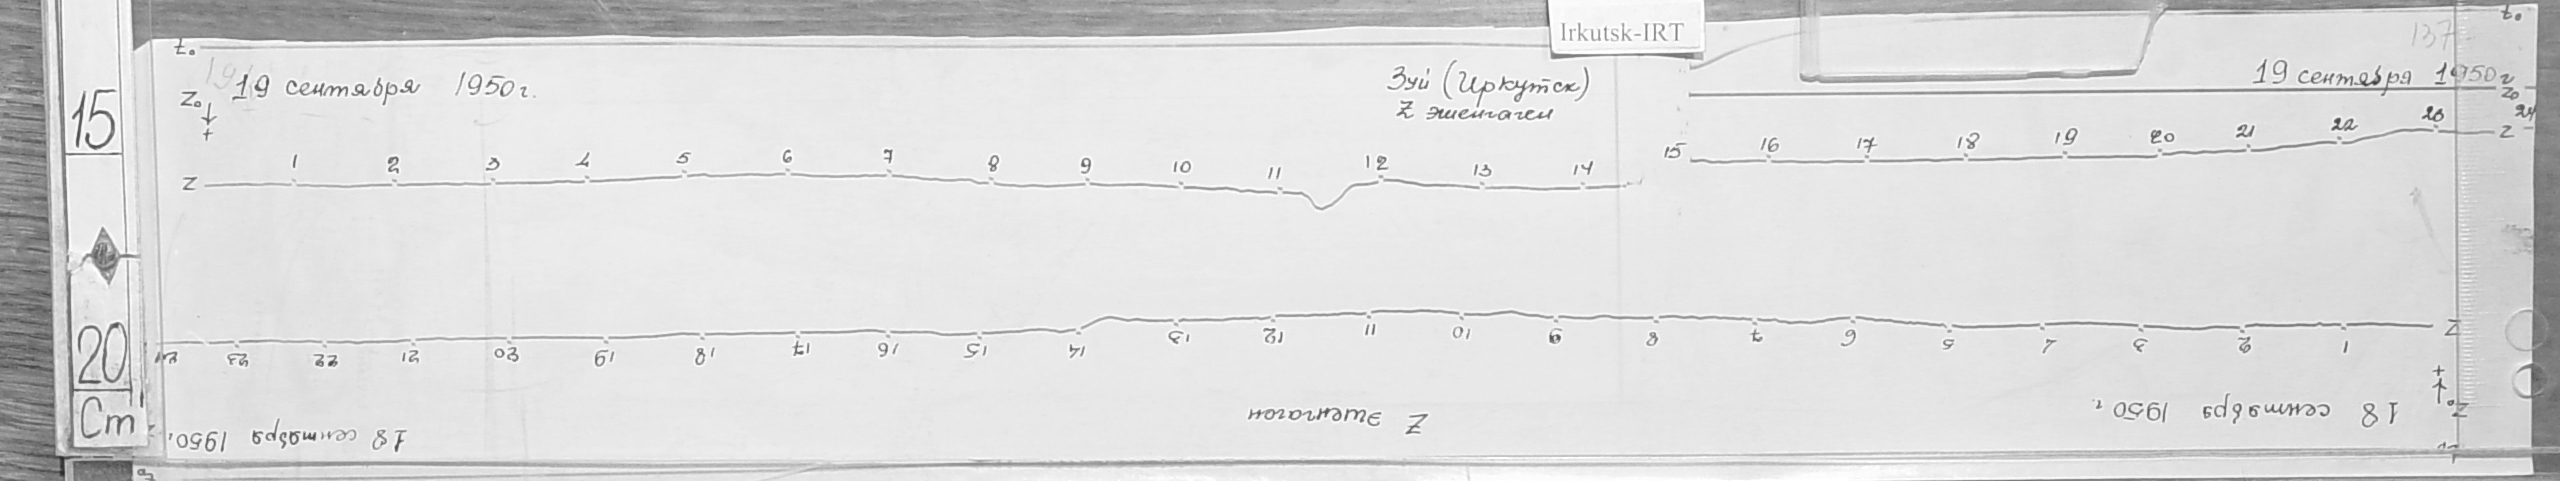 t.
Irkutsk-IRT
t.
137
19 сентября 1950г.
Зуй (Иркутск)
19 сентября 1950г
Z₀
Z₀
+
Z эшенгаген
15
1 2 3 4 5 6 7 8 9 10 11 12 13 14 15 16 17 18 19 20 21 22 23 24
Z
Z
24 23 22 21 20 19 18 17 16 15 14 13 12 11 10 9 8 7 6 5 4 3 2 1
Z
20
+
Cm
Z₀
18 сентября 1950г.
Z эшенгаген
18 сентября 1950г.